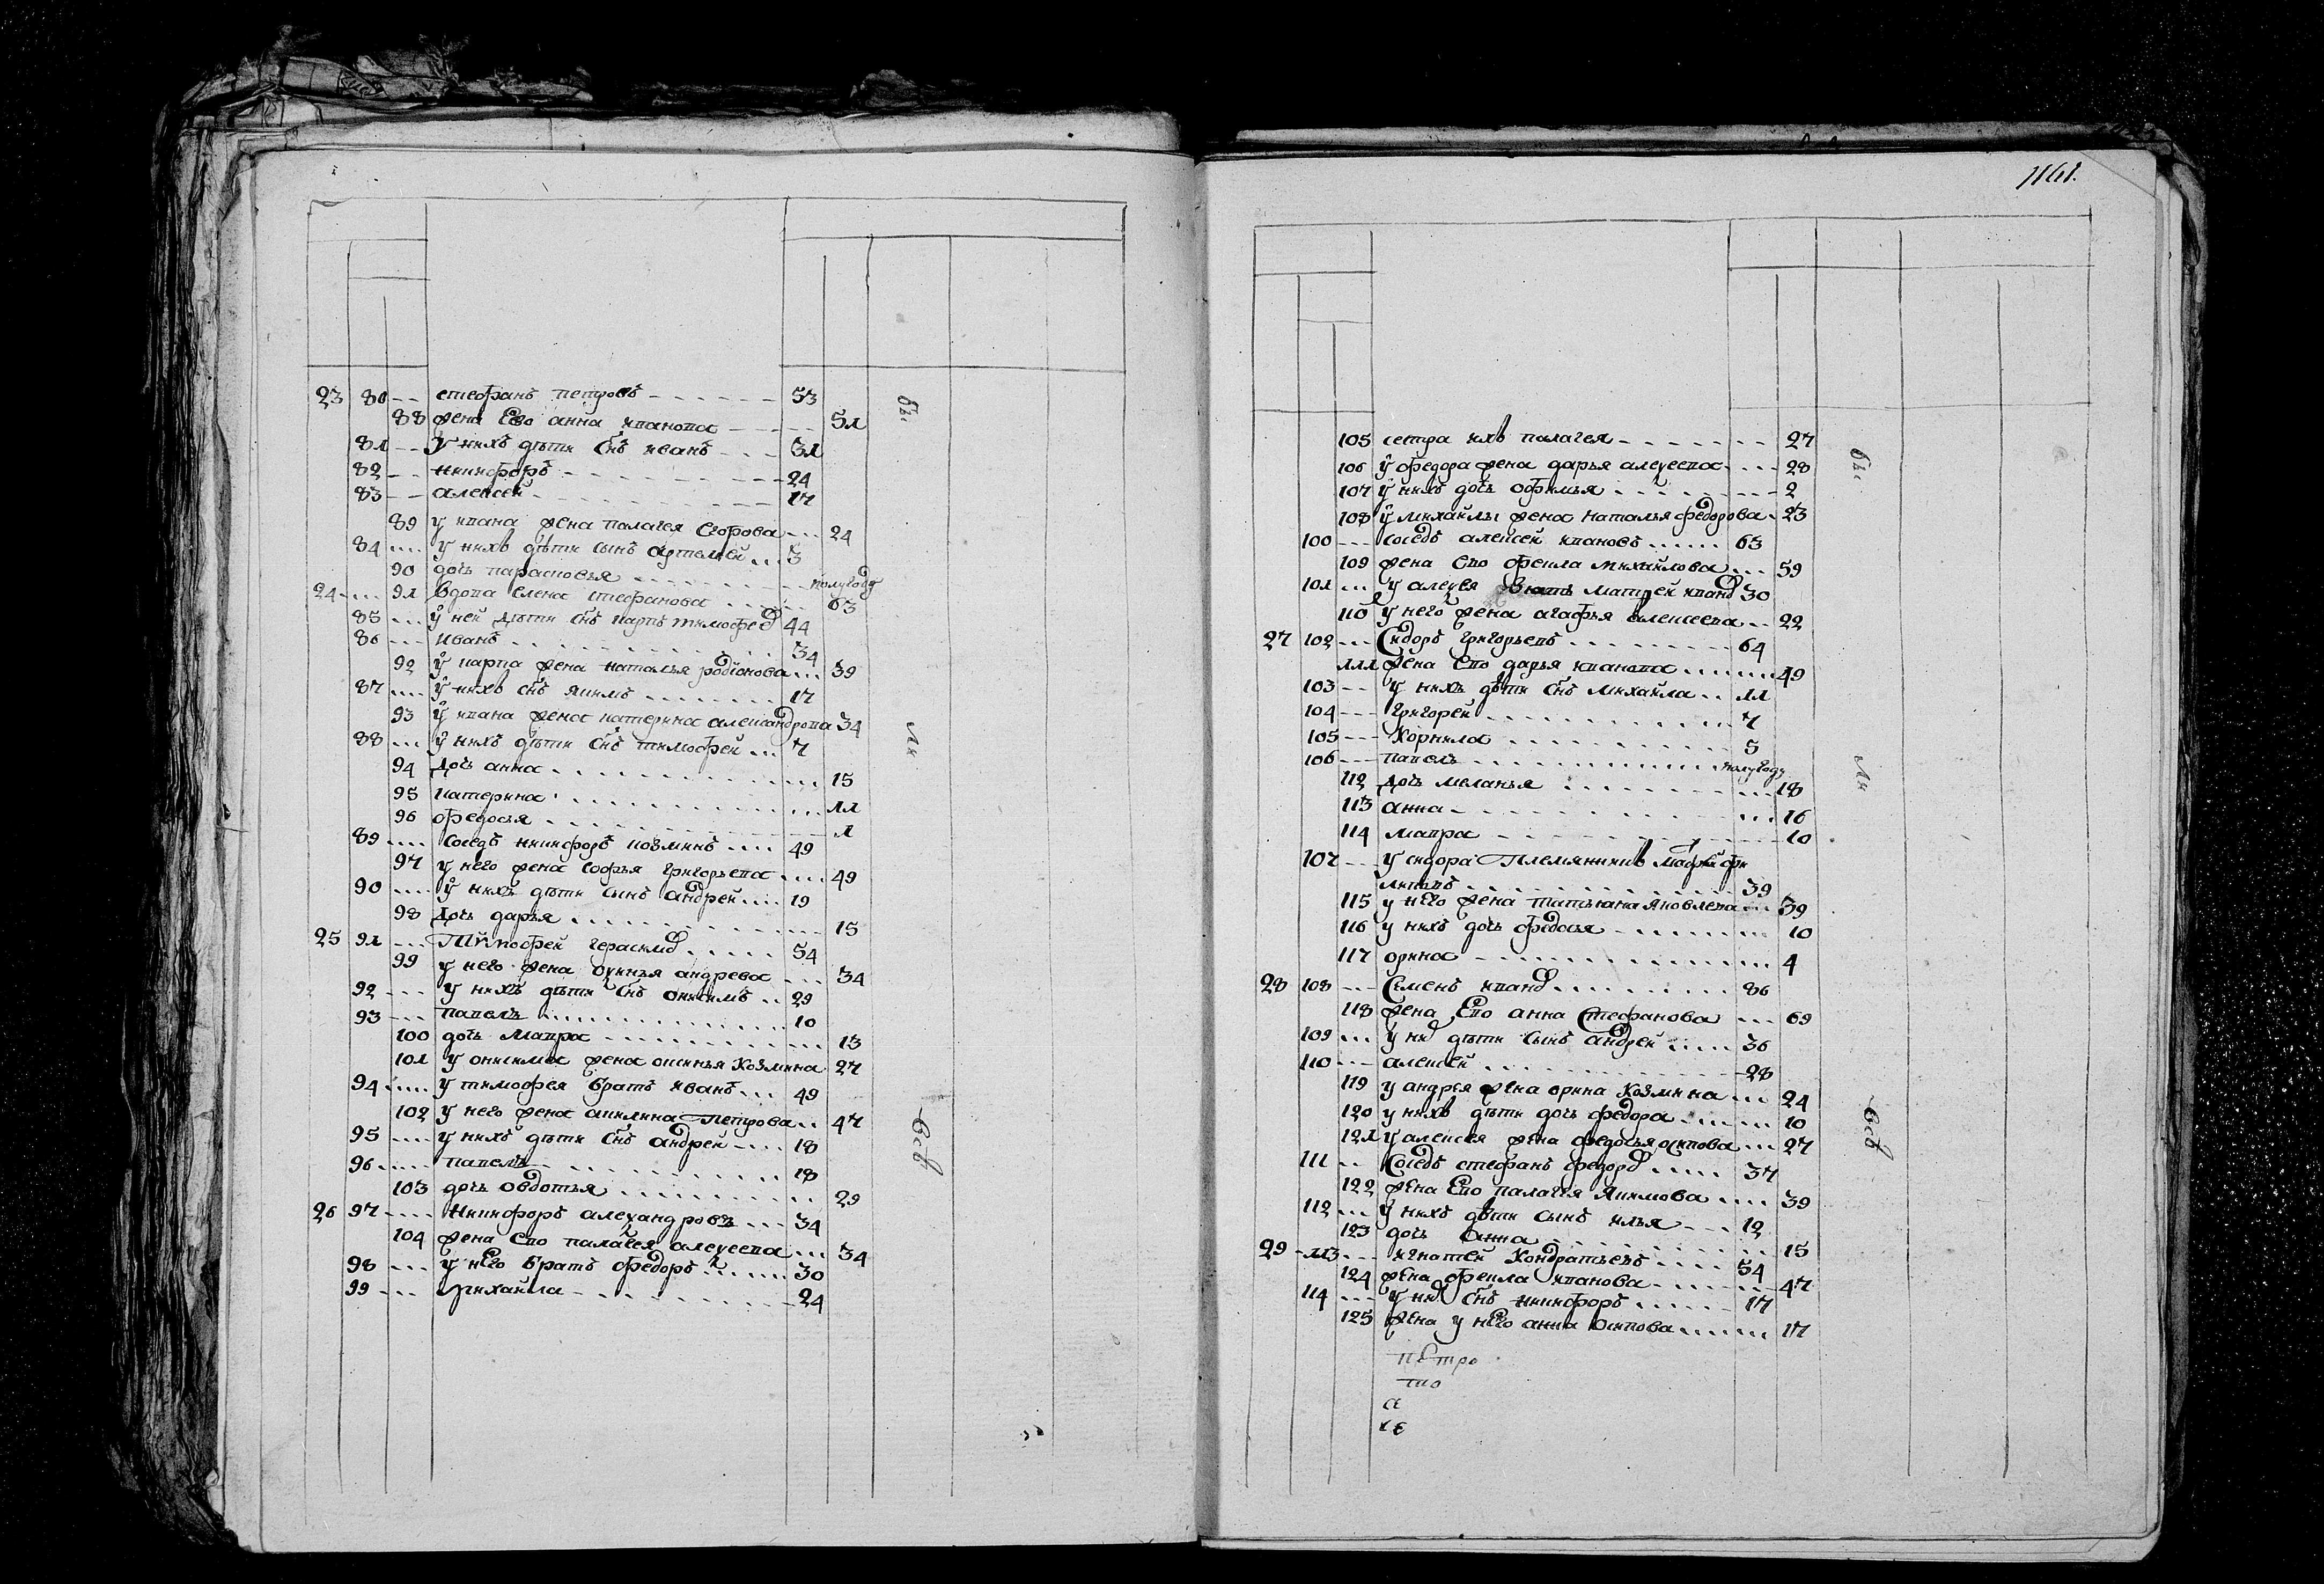 23 80 -- стефанъ петровъ - - - 53
88 жена Ево анна иванова - - - 51
81 -- У нихъ дѣти Снъ иванъ - - - 31
82 -- никифоръ - - - 24
83 -- алексей - - - 17
89 у ивана жена палагея Егорова ... 24
84 .... у нихъ дѣти сынъ Артемей ... 3
90 дочь парасковья - - - полугоду
24 .... 91 вдова Елена стефанова ... 63
85 ... у ней дѣти Снъ карпъ тимофеӗ 44
86 --- иванъ ... 34
92 у карпа жена наталья родионова ... 39
87 .... у нихъ снъ якимъ ... 17
93 у ивана жена катерина александрова 34
88 ... у нихъ дѣти Снъ тимофей ... 7
94 дочь анна ... 15
95 катерина ... 11
96 федосья ... 1
89 .... соседъ никифоръ козминъ .... 49
97 у него жена софья григорьева .... 49
90 .... у нихъ дѣти сынъ андрей .... 19
98 дочь дарья ... 15
25 91 --- Тимофей герасимо ..... 54
99 у него жена андрева ... 34
92 --- у нихъ дѣти Снъ онисимъ .. 29
93 --- павелъ ... 10
100 дочь мавра ... 13
101 у онисима жена Козмина 27
94 ..... у тимофея братъ иванъ ... 49
102 у него жена акилина Петрова .. 47
95 .... у нихъ дѣти Снъ андрей .... 18
96 ..... павелъ ... 18
103 дочь овдотья ... 29
26 97 .... никифоръ александровъ ... 34
104 жена Ево палагея алексеева ... 34
98 ... у него братъ федоръ ... 30
99 ... михаила ... 24
бы
ли
всѣ
1161.
105 сестра ихъ палагея - - - 27
106 у федора жена дарья алексеева ... 28
107 у нихъ дочь офимья ... 2
108 у михаилы жена наталья федорова . 23
100 --- соседъ алексей ивановъ ...... 63
109 жена Ево фекла михаилова ... 59
101 ... у алексея зять матвей ивано 30
110 у него жена агафья алексеева .. 22
27 102 ... Сидоръ григорьевъ ... 64
111 жена Ево дарья иванова ... 49
103 -- у нихъ дѣти Снъ михаила .. 11
104 --- григорей ... 7
105 --- Корнила ... 5
106 --- павелъ ... полугоду
112 дочь меланья ... 18
113 анна ... 16
114 мавра ... 10
107 --- у сидора Племянникъ
... 39
115 у него жена татьяна яковлева ... 39
116 у нихъ дочь федосья ... 10
117 орина ... 4
28 108 --- Семенъ ивано ... 86
118 жена Ево анна Стефанова ... 69
109 ... у ни дѣти сынъ андрей ..... 36
110 --- алексей ... 28
119 у андрея жена орина Козмина ... 24
120 у нихъ дѣти дочь федора ... 10
121 у алексея жена федосья осипова ... 27
111 .. Соседъ стефанъ федоро ..... 37
122 жена Ево палагея Якимова .... 39
112 ... у нихъ дѣти сынъ илья ... 12
123 дочь Анна ... 15
29 113 ... игнатей Кондратьевъ .... 54
124 жена фекла иванова ... 47
114 ... у ни Снъ никифоръ ...... 17
125 жена у него анна осипова ... 17
петро
а
бы
ли
всѣ